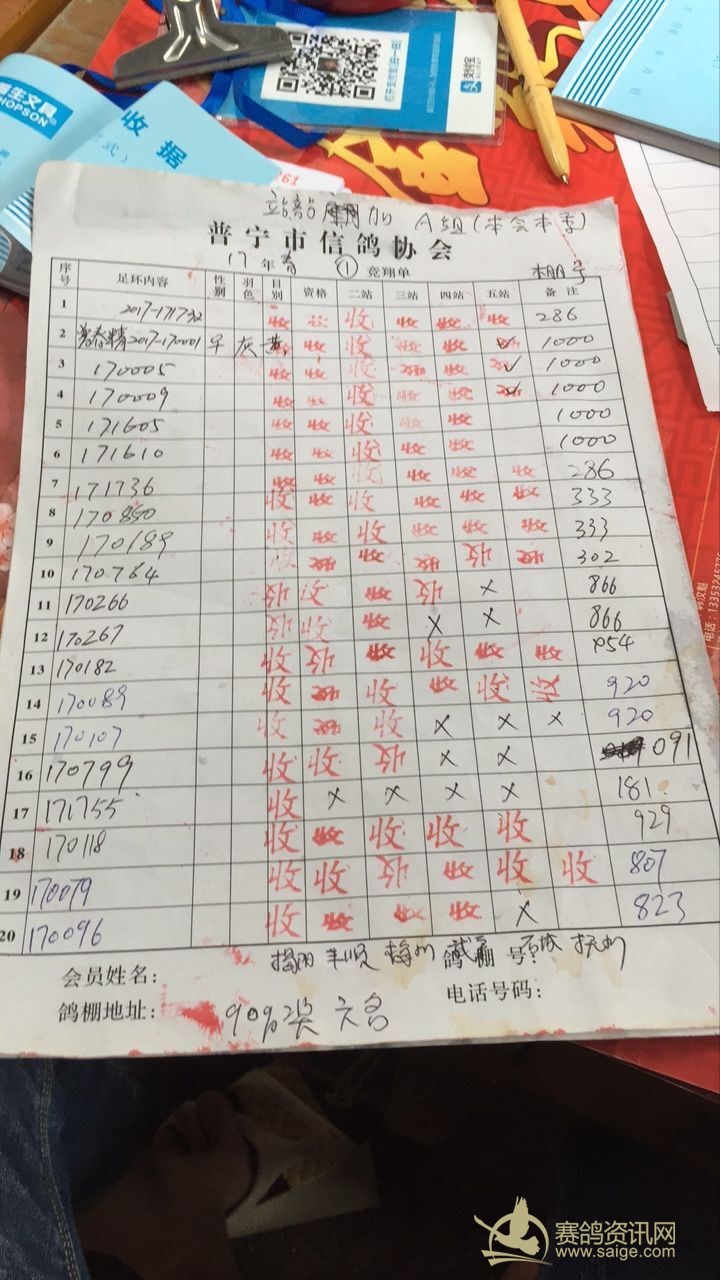 支付宝
ALIPAY
HOPSON
收据
261
站站 加 A组(本会本季)
普宁市信鸽协会
17年春 ① 竞翔单
序号 足环内容 性别 羽色 目别 资格 二站 三站 四站 五站 备注
1 2017-171732 收 收 收 收 收 收 286
2 2017-170001 灰 黄 收 收 收 收 ✓ 1000
3 170005 收 收 收 收 收 ✓ 1000
4 170009 收 收 收 收 收 ✓ 1000
5 171605 收 收 收 收 收 1000
6 171610 收 收 收 收 收 1000
7 171736 收 收 收 收 收 收 286
8 170850 收 收 收 收 收 收 333
9 170189 收 收 收 收 收 收 333
10 170764 收 收 收 收 收 收 302
11 170266 收 收 收 收 × 866
12 170267 收 收 收 × × 866
13 170182 收 收 收 收 收 收
14 170089 收 收 收 收 收 收 920
15 170107 收 收 收 × × × 920
16 170799 收 收 收 × × 091
17 171755 收 × × × × 181
18 170118 收 收 收 收 收 929
19 170079 收 收 收 收 收 收 807
20 170096 收 收 收 收 × 823
会员姓名: 鸽棚号:
鸽棚地址: 电话号码:
90%奖 六名
赛鸽资讯网
www.saige.com